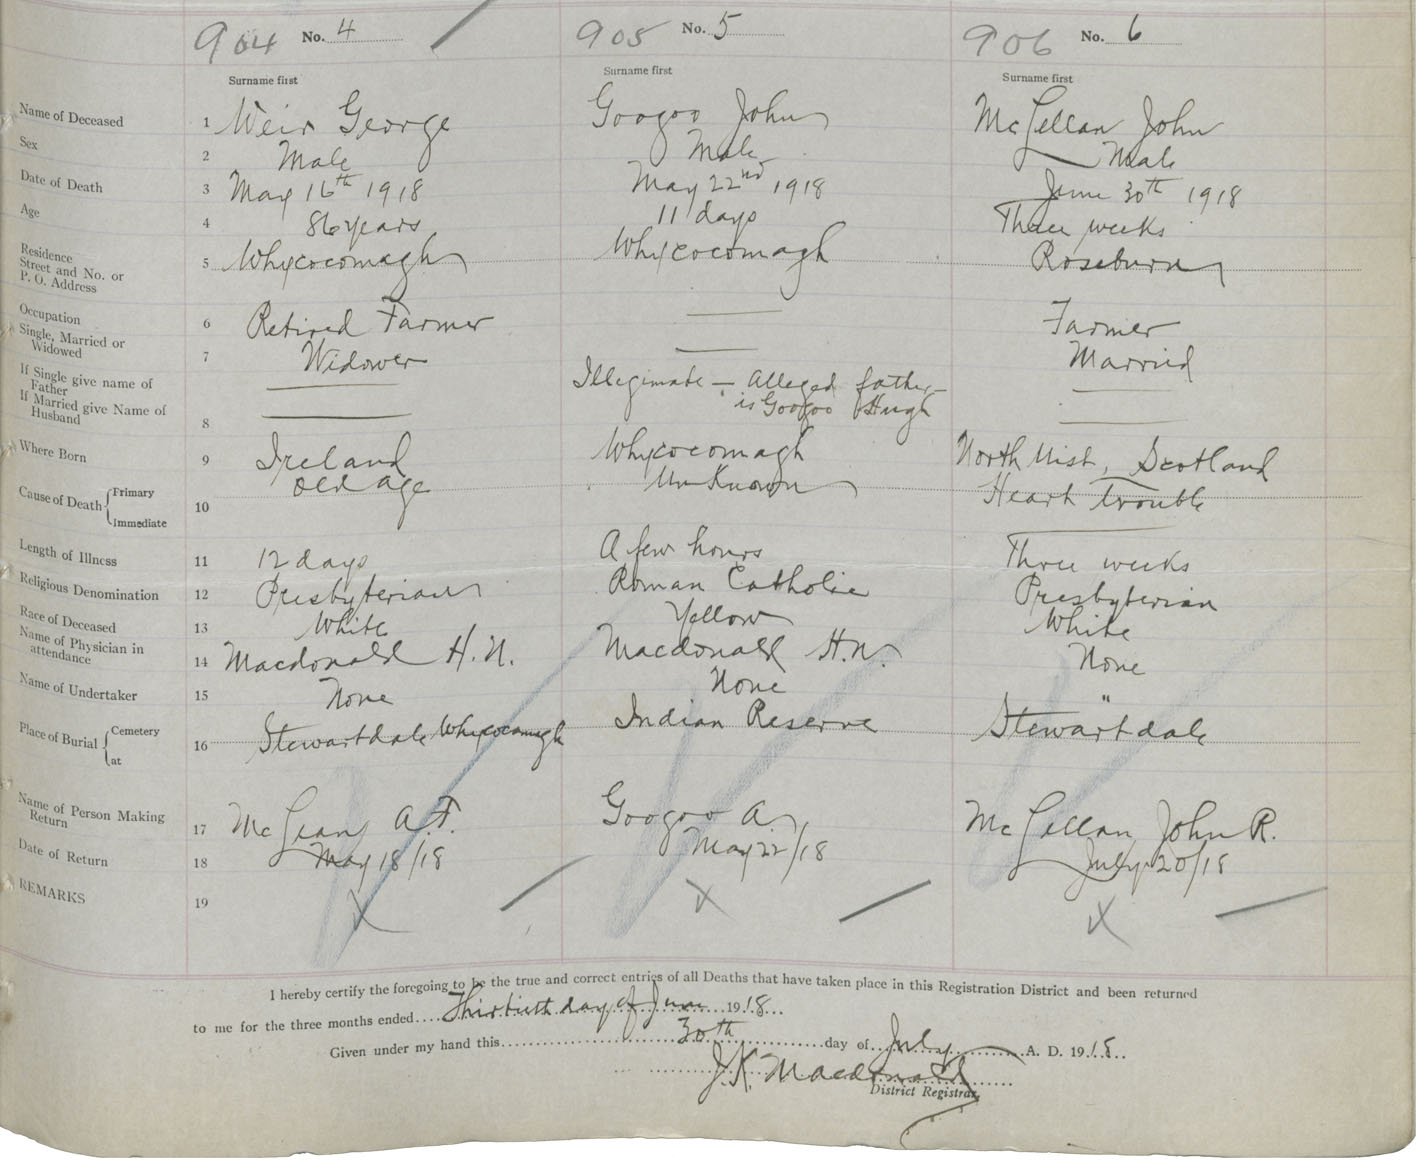 904 No. 4
905 No. 5
906 No. 6
Surname first
Surname first
Surname first
Name of Deceased 1 Weir George
Googoo John
McLellan John
Sex 2 Male
Male
Male
Date of Death 3 May 16th 1918
May 22nd 1918
June 30th 1918
Age 4 86 years
11 days
Three weeks
Residence
Street and No. or
P. O. Address
5 Whycocomagh
Whycocomagh
Roseburn
Occupation 6 Retired Farmer
Farmer
Single, Married or
Widowed
7 Widower
Married
If Single give name of
Father
If Married give Name of
Husband
8
Illegimate - Alleged father -
is Googoo Hugh
Where Born 9 Ireland
Whycocomagh
North Uist, Scotland
Cause of Death { Primary
Immediate
10 Old Age
Unknown
Heart trouble
Length of Illness 11 12 days
A few hours
Three weeks
Religious Denomination 12 Presbyterian
Roman Catholic
Presbyterian
Race of Deceased 13 White
Yellow
White
Name of Physician in
attendance
14 Macdonald H.N.
Macdonald H.N.
None
Name of Undertaker 15 None
None
"
Place of Burial { Cemetery
at
16 Stewartdale Whycocomagh
Indian Reserve
Stewartdale
Name of Person Making
Return
17 McLean A.F.
Googoo A.
McLellan, John R.
Date of Return 18 May 18/18
May 22/18
July 20/18
REMARKS 19 X
X
X
I hereby certify the foregoing to be the true and correct entries of all Deaths that have taken place in this Registration District and been returned
to me for the three months ended.... Thirtieth day of June 1918...
Given under my hand this 30th day of July A. D. 1918..
J.K. Macdonald
District Registrar.